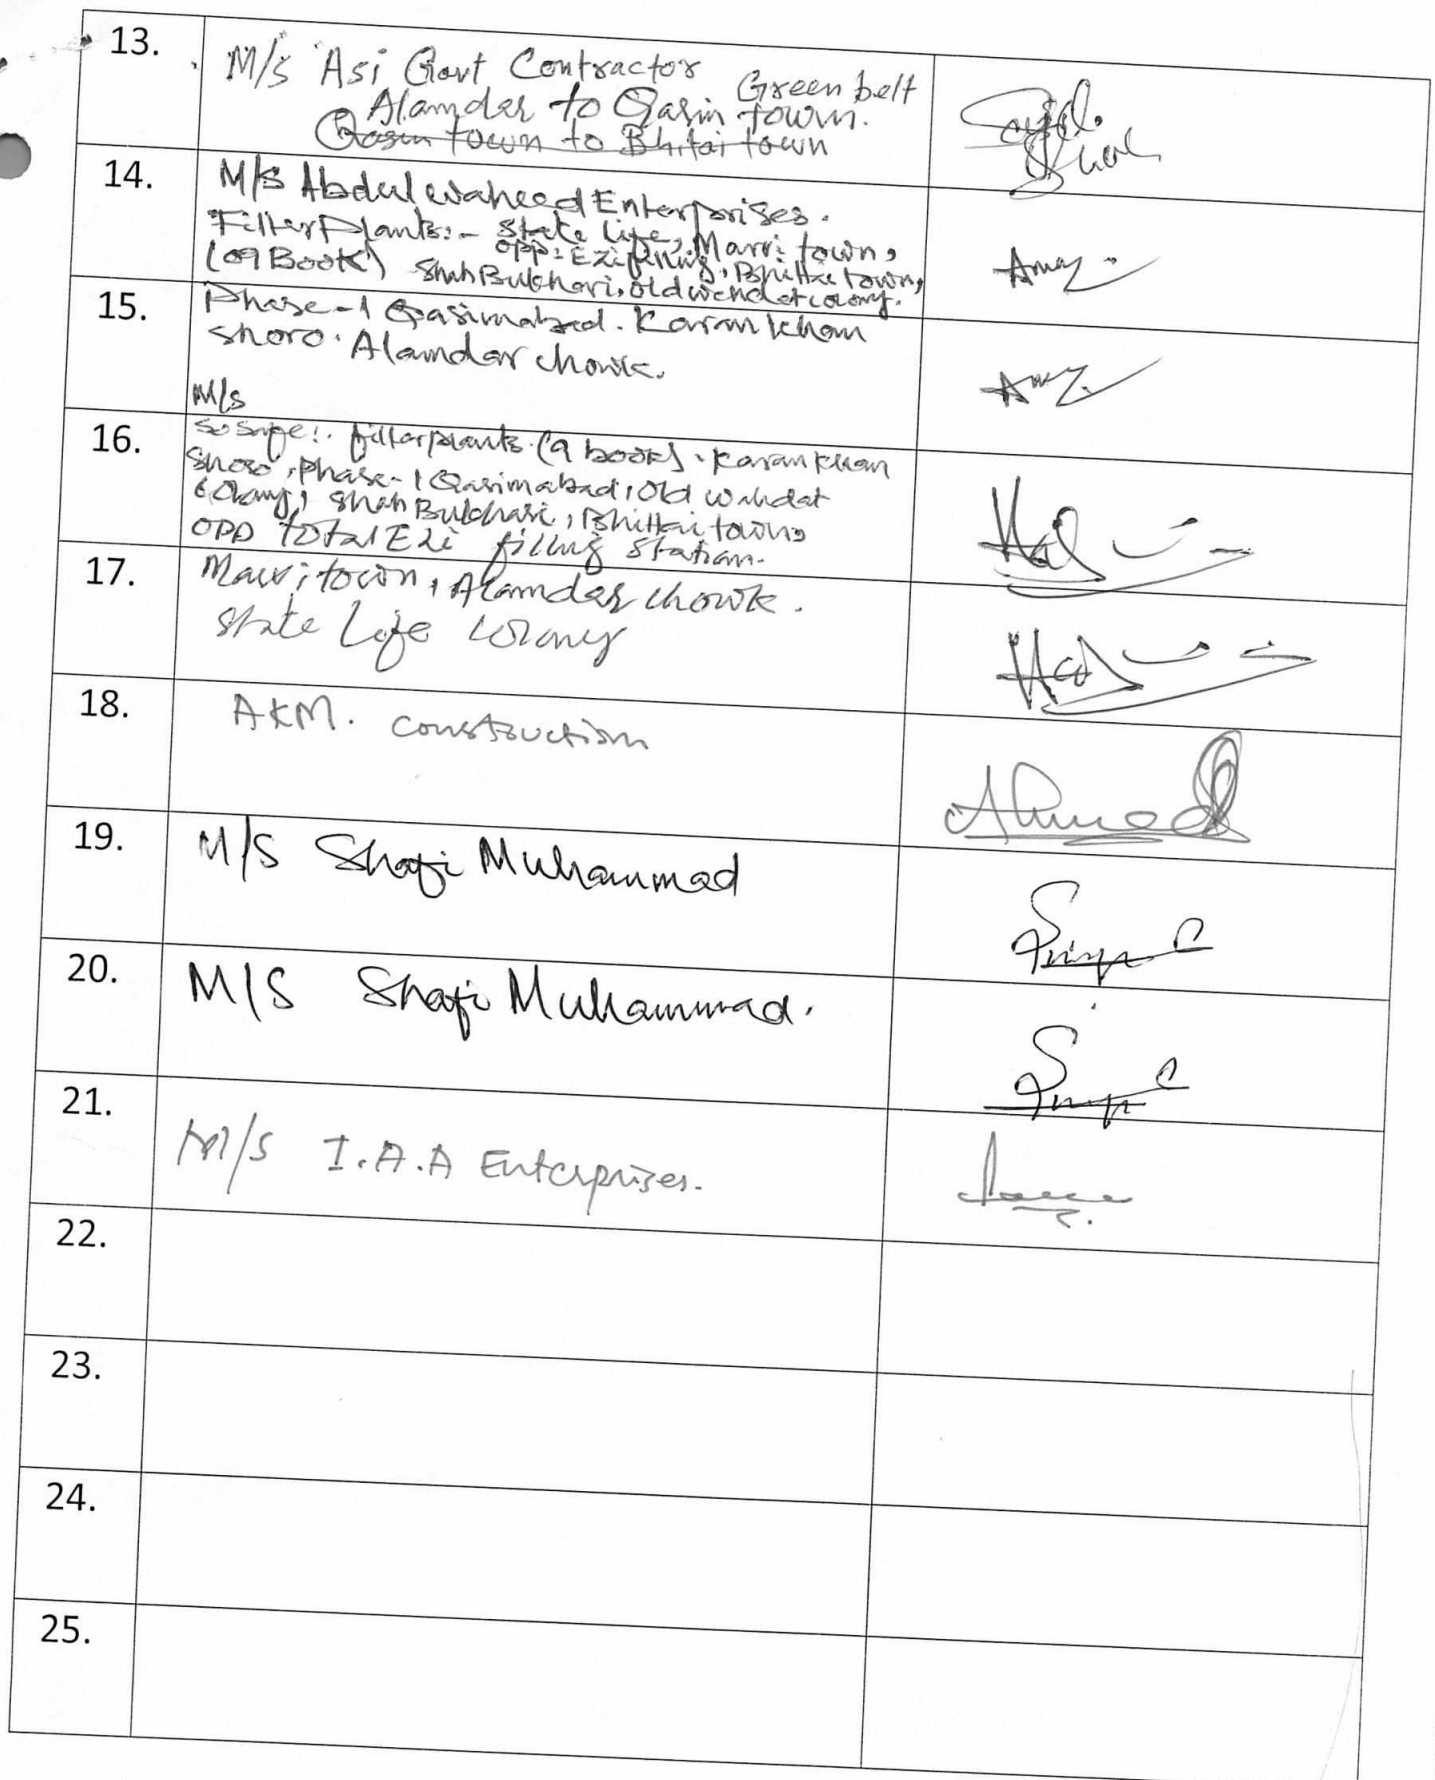 13.
M/s Asi Govt Contractor Green belt
Alamdar to Qasim town.
Qasim town to Bhitai town
14.
M/s Abdul waheed Enterprises.
Filter Plants:- State life, Marvi town,
(09 Book) opp: Ezi filling, Bhittai town,
Shah Bukhari, old wahdat colony.
15.
Phase-1 Qasimabad. Karan khan
shoro. Alamdar chowk.
M/s
16.
So safe:. filter plants (9 book). Karan khan
Shoro, phase-1 Qasimabad, old wahdat
colony, Shah Bukhari, Bhittai town,
OPP total Ezi filling station.
17.
Marvi town, Alamdar chowk.
State Life colony
18.
AKM. construction
Ahmed
19.
M/S Shafi Muhammad
20.
M/S Shafi Muhammad.
21.
M/s I.A.A Enterprises.
22.
23.
24.
25.